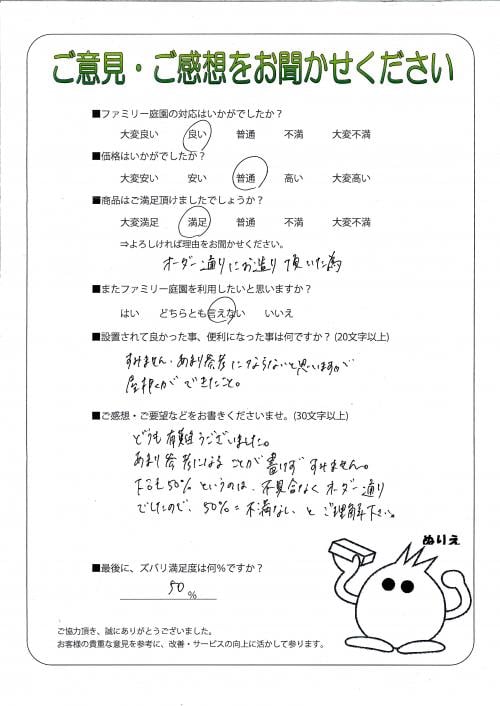 ご意見・ご感想をお聞かせください
■ファミリー庭園の対応はいかがでしたか？
大変良い 良い 普通 不満 大変不満
■価格はいかがでしたか？
大変安い 安い 普通 高い 大変高い
■商品はご満足頂けましたでしょうか？
大変満足 満足 普通 不満 大変不満
⇒よろしければ理由をお聞かせください。
オーダー通りにお造り頂いた為
■またファミリー庭園を利用したいと思いますか？
はい どちらとも言えない いいえ
■設置されて良かった事、便利になった事は何ですか？(20文字以上)
すみません。あまり参考にならないと思いますが
屋根ができたこと。
■ご感想・ご要望などをお書きくださいませ。(30文字以上)
どうも有難うございました。
あまり参考になることが書けずすみません。
50%というのは、不具合なくオーダー通り
でしたので、50%=不満なし とご理解下さい。
ぬりえ
■最後に、ズバリ満足度は何%ですか？
50 %
ご協力頂き、誠にありがとうございました。
お客様の貴重な意見を参考に、改善・サービスの向上に活かして参ります。